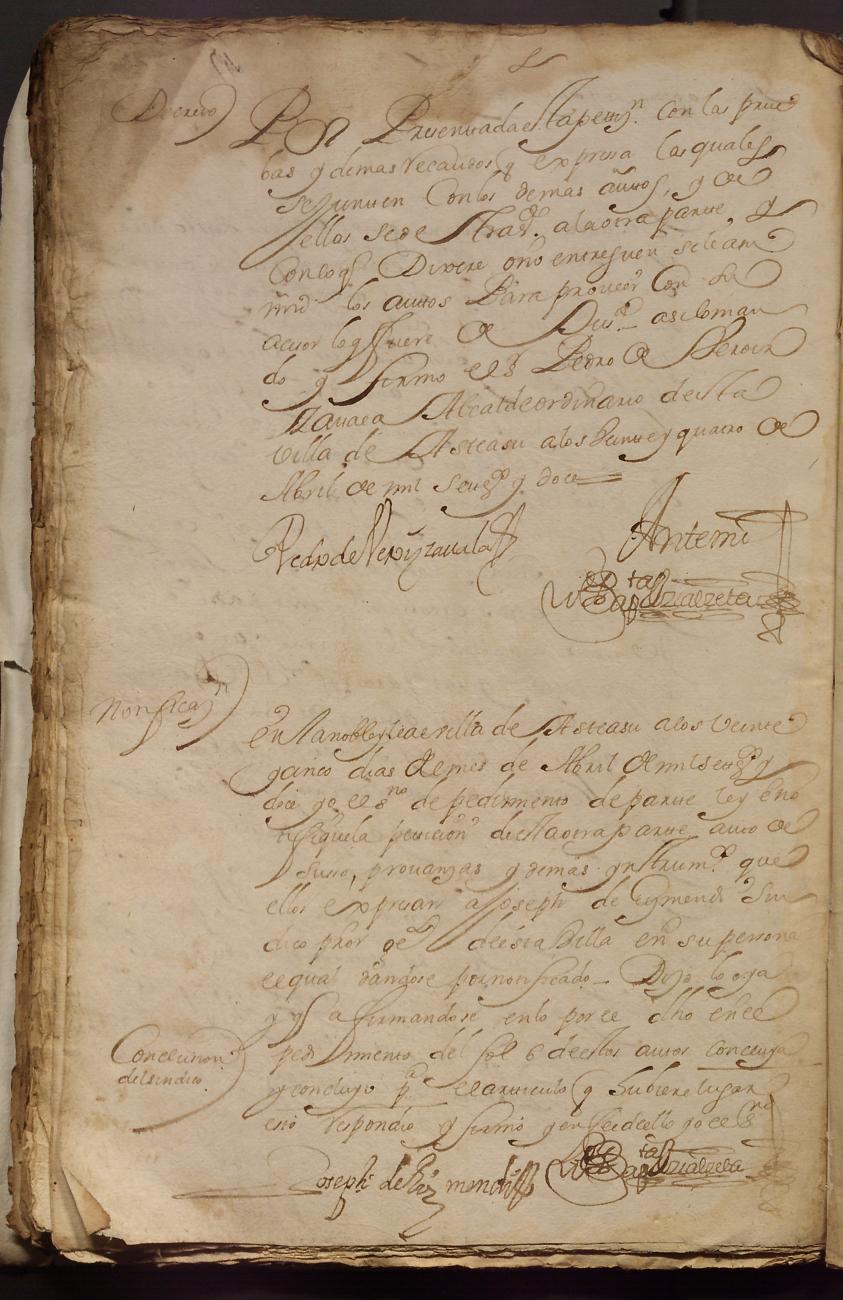 Decreto
Por Presentada esta petizn. con las prue
bas y demas recaudos q expresa las quales
se junten con los demas autos, y de
ellos se de traldo. a la otra parte, y
con lo q Dixere o no entreguen se lean a
md los autos Para proveer con su
acuerdo lo q fuere de Jusa. asi lo man
do y firmo el sr Pedro de Veroiz
zavala Alcalde ordinario de esta
villa de Asteasu a los veinte y quatro de
Abril de mil setezos y doce
Pedro de Veroiz zavala
Ante mi
Bapta
Notificazn
en la noble y leal villa de Asteasu a los veinte
y cinco dias del mes de Abril de mil setezos y
doce yo el sno de pedimento de parte ley e no
tifique la peticion de la otra parte auto de
suso, provanzas y demas ynstrumtos que
ellos expresan a Joseph de Eizmendi Sin
dico pror gel de esta Villa en su persona
el qual dandose por notificado Dijo lo oya
y q afirmandose en lo por el dho en el
pedimento del fol 6 de estos autos concluya
Conclusion
del sindico
y concluyo pa el articulo q hubiere lugar
esto respondio y firmo y en fee de ello yo el sno
Joseph de Eizmendi
Bapta